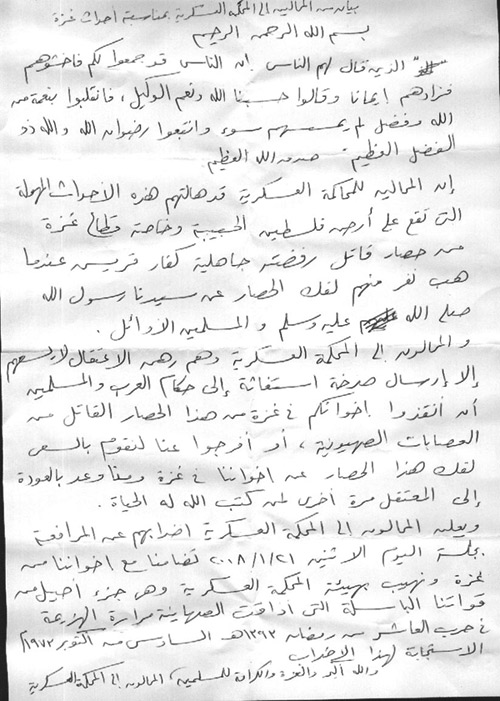 بيان من المحالين إلى المحكمة العسكرية بمناسبة أحداث غزة
بسم الله الرحمن الرحيم
" الذين قال لهم الناس إن الناس قد جمعوا لكم فاخشوهم
فزادهم إيمانا وقالوا حسبنا الله ونعم الوكيل ، فانقلبوا بنعمة من
الله وفضل لم يمسسهم سوء واتبعوا رضوان الله والله ذو
الفضل العظيم " صدق الله العظيم .
إن المحالين للمحاكمة العسكرية قد هالتهم هذه الأحداث المهولة
التى تقع على أرض فلسطين الحبيبة وخاصة قطاع غزة
من حصار قاتل رفضته جاهلية كفار قريش عندما
هب نفر منهم لفك الحصار عن سيدنا رسول الله
صلى الله عليه وسلم و المسلمين الأوائل .
و المحالون إلى المحكمة العسكرية وهم رهن الاعتقال لا يسعهم
إلا إرسال صرخة استغاثة إلى حكام العرب والمسلمين
أن أنقذوا إخوانكم فى غزة من هذا الحصار القاتل من
العصابات الصهيونية ، أو أفرجوا عنا لنقوم بالسعى
لفك هذا الحصار عن إخواننا فى غزة ومنا وعد بالعودة
إلى المعتقل مرة أخرى لمن كتب الله له الحياة .
ويعلن المحالون إلى المحكمة العسكرية اضرابهم عن المرافعة
بجلسة اليوم الاثنين ٢٠٠٨/١/٢١ تضامنا مع اخواننا من
غزة ونهيب بهيئة المحكمة العسكرية وهى جزء أصيل من
قواتنا الباسلة التى أذاقت الصهاينة مرارة الهزيمة
فى حرب العاشر من رمضان ١٣٩٣هـ السادس من أكتوبر ١٩٧٣م
الاستجابة لهذا الإضراب
والله أكبر والعزة والكرامة للمسلمين، المحالون إلى المحكمة العسكرية